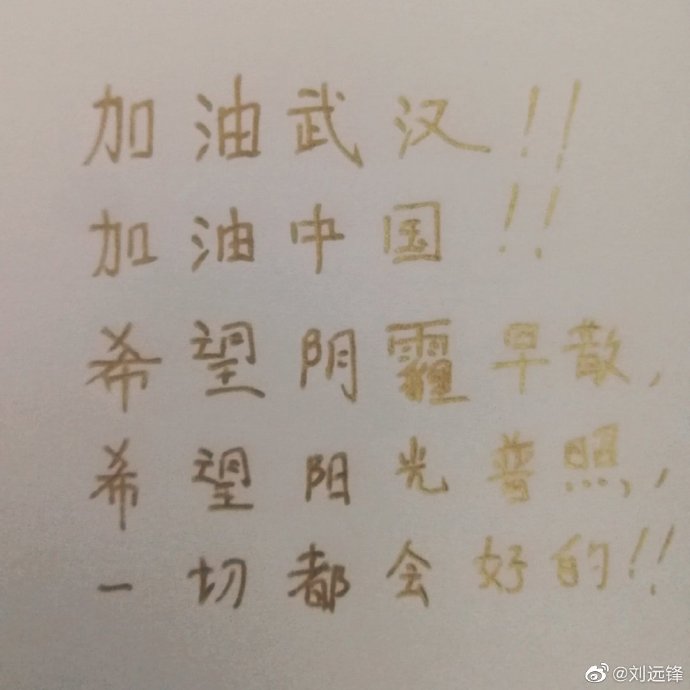 加油武汉!!
加油中国!!
希望阴霾早散,
希望阳光普照,
一切都会好的!!
@刘远锋